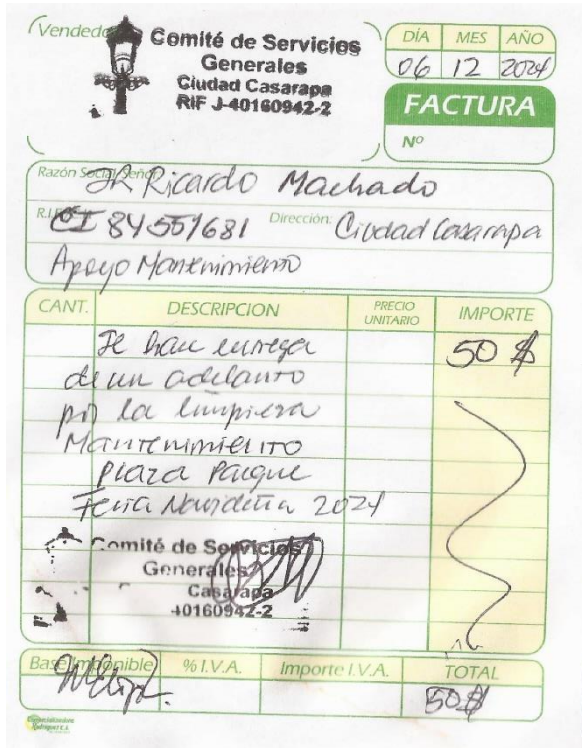 Vendedor
Comité de Servicios
Generales
Ciudad Casarapa
RIF J-40160942-2
DÍA MES AÑO
06 12 2024
FACTURA
Nº
Razón Social/Señor Ricardo Machado
R.I.F. CI 84551681 Dirección: Ciudad Casarapa
Apoyo Mantenimiento
CANT. DESCRIPCION PRECIO UNITARIO IMPORTE
Se hace entrega 50 $
de un adelanto
por la limpieza
Mantenimiento
Plaza Parque
Feria Navideña 2024
Comité de Servicios
Generales
Casarapa
40160942-2
Base Imponible % I.V.A. Importe I.V.A. TOTAL
50 $